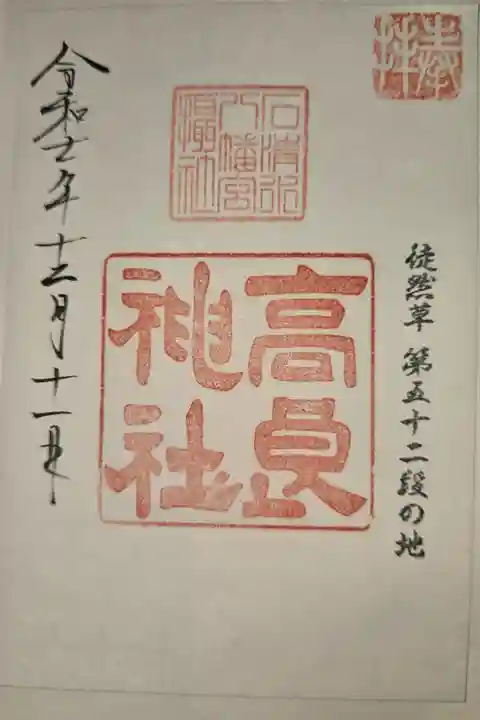 奉拝
徒然草 第五十二段の地
石清水
八幡宮
摂社
高良
神社
令和七年十二月十一日